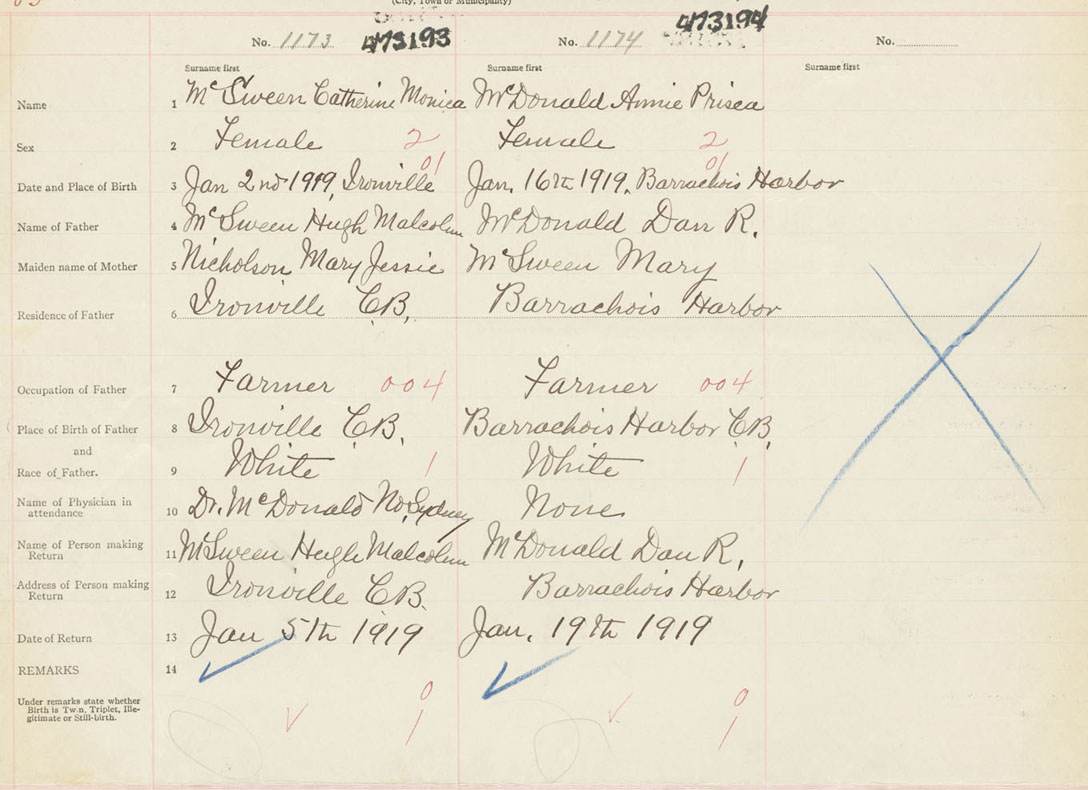 (City, Town or Municipality)
No. 1173 473193 No. 1174 473194 No.
Surname first Surname first Surname first
Name 1 McSween Catherine Monica McDonald Annie Prisca
Sex 2 Female 2 Female 2
01 01
Date and Place of Birth 3 Jan 2nd 1919, Ironville Jan. 16th 1919. Barrachois Harbor
Name of Father 4 McSween Hugh Malcolm McDonald Dan R.
Maiden name of Mother 5 Nicholson Mary Jessie McSween Mary
Residence of Father 6 Ironville C.B. Barrachois Harbor
Occupation of Father 7 Farmer 004 Farmer 004
Place of Birth of Father 8 Ironville C.B. Barrachois Harbor C.B.
and
Race of Father. 9 White 1 White 1
Name of Physician in
attendance 10 Dr. McDonald No. Sydney None
Name of Person making
Return 11 McSween Hugh Malcolm McDonald Dan R.
Address of Person making
Return 12 Ironville C.B. Barrachois Harbor
Date of Return 13 Jan 5th 1919 Jan. 19th 1919
REMARKS 14
Under remarks state whether
Birth is Twin, Triplet, Ille-
gitimate or Still-birth.
0 0
1 1